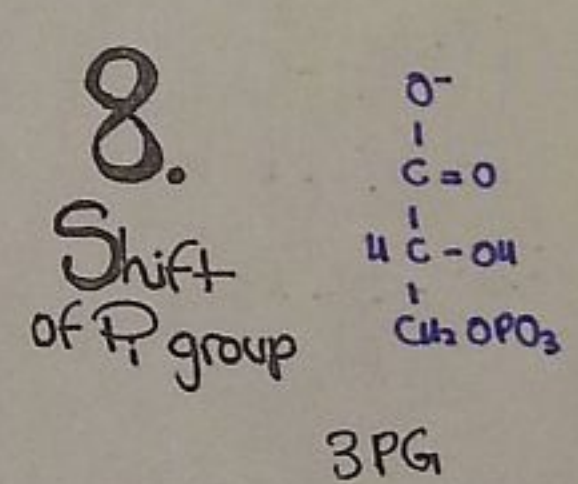 8.
Shift
of Pi group
O⁻
C=O
H C-OH
CH₂OPO₃
3PG